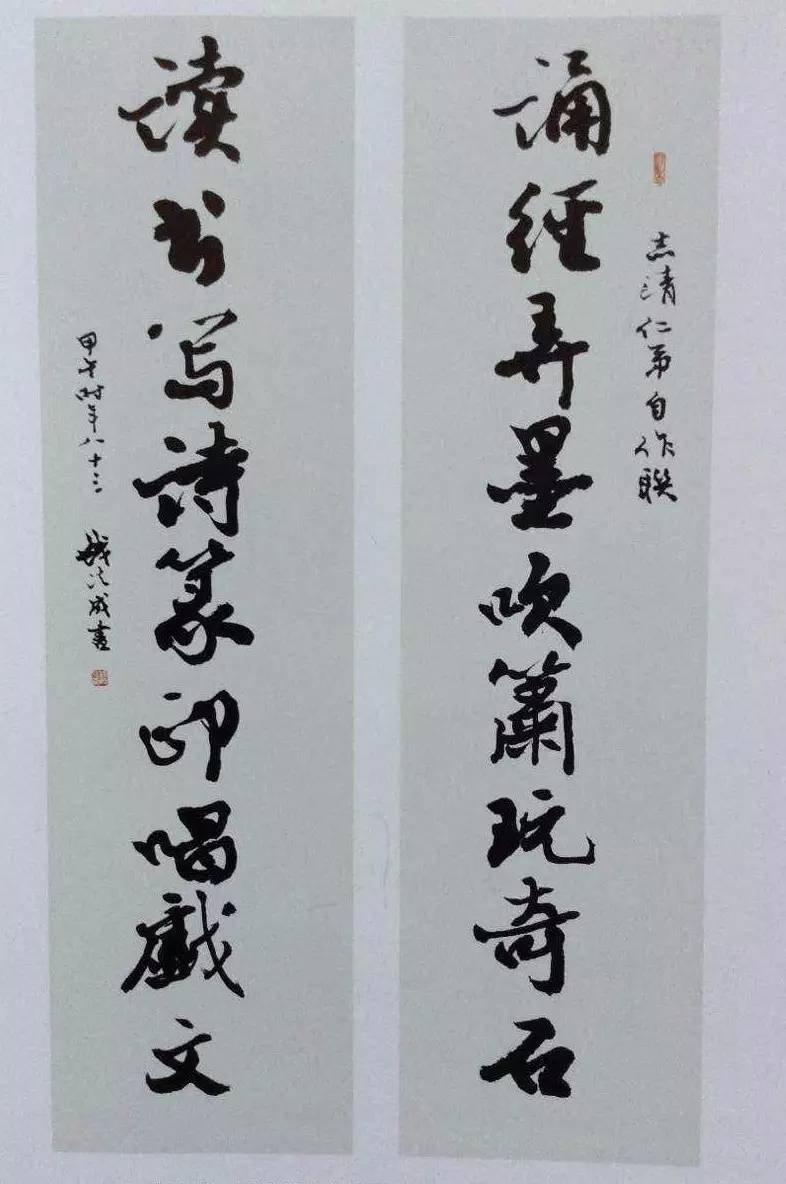 志清仁弟自作联
誦經弄墨吹簫玩奇石
读书写詩篆印唱戲文
甲午时年八十三 成書